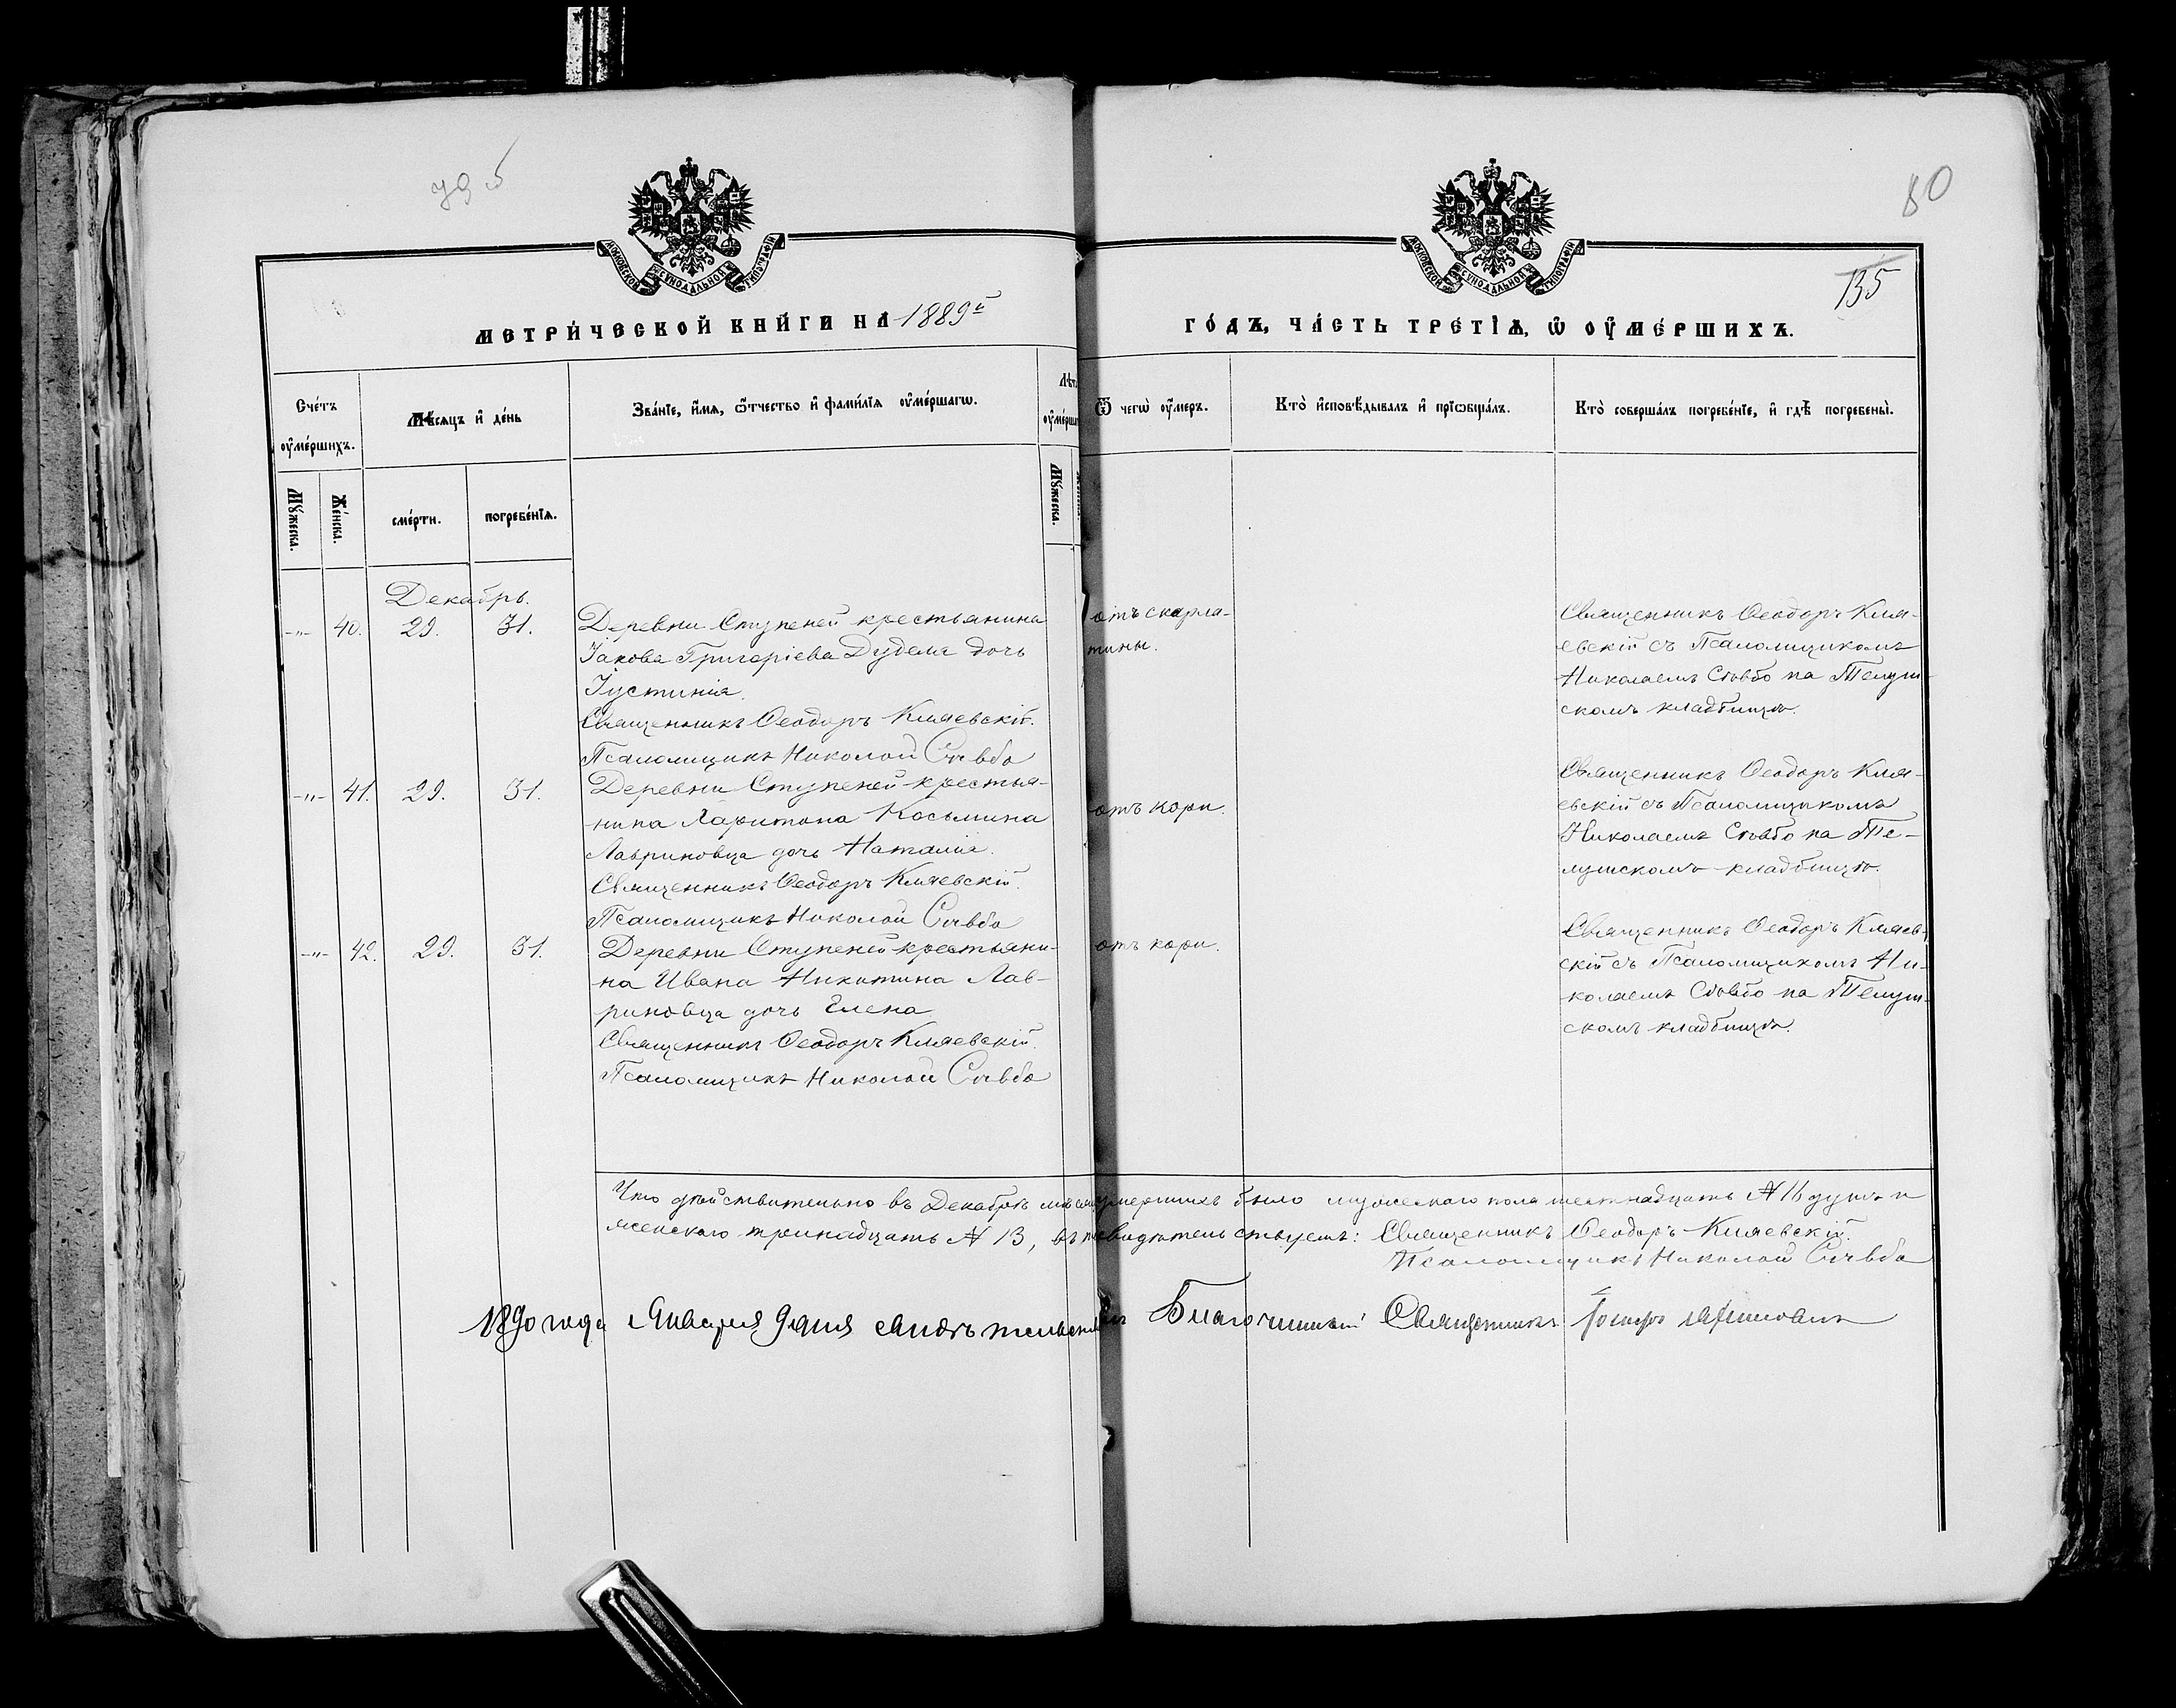 79 б
80
135
МОСКОВСКОЙ СѴНОДАЛЬНОЙ ТИПОГРАФІИ
МОСКОВСКОЙ СѴНОДАЛЬНОЙ ТИПОГРАФІИ
МЕТРИ́ЧЕСКОЙ КНИ́ГИ НА 1889й
ГО́ДЪ, ЧА́СТЬ ТРЕ́ТІѦ, Ѡ ОУ҆МЕ́РШИХЪ.
Сче́тъ
оу҆ме́ршихъ.
Мѣ́сѧцъ и҆ де́нь
Зва́нїе, и҆́мѧ, ѻ҆́тчество и҆ фами́лїѧ оу҆ме́ршагѡ.
Лѣт
оу҆мерша
Ѿ чегѡ̀ оу҆́меръ.
Кто̀ и҆сповѣ́дывалъ и҆ прїѡбща́лъ.
Кто̀ соверша́лъ погребе́нїе, и҆ гдѣ̀ погребены̀.
Мꙋ́жеска.
Же́нска.
сме́рти.
погребе́нїѧ.
Мꙋ́жеска.
Декабрь.
-„- 40. 29. 31. Деревни Ступеней крестьянина
Іакова Григоріева Дуделя дочь
Іустинія.
Священникъ Ѳеодоръ Кляевскій.
Псаломщикъ Николай Съвбо
отъ скарла-
тины.
Священникъ Ѳеодоръ Кля-
евскій съ Псаломщикомъ
Николаемъ Съвбо на Телуш-
скомъ кладбищѣ.
-„- 41. 29. 31. Деревни Ступеней крестья-
нина Харитона Косьмина
Лавриновца дочь Наталія.
Священникъ Ѳеодоръ Кляевскій.
Псаломщикъ Николай Съвбо
отъ кори.
Священникъ Ѳеодоръ Кля-
евскій съ Псаломщикомъ
Николаемъ Съвбо на Те-
лушскомъ кладбищѣ.
-„- 42. 29. 31. Деревни Ступеней крестьяни-
на Ивана Никитина Лав-
риновца дочь Елена.
Священникъ Ѳеодоръ Кляевскій.
Псаломщикъ Николай Съвбо
отъ кори.
Священникъ Ѳеодоръ Кляев-
скій съ Псаломщикомъ Ни-
колаемъ Съвбо на Телуш-
скомъ кладбищѣ.
Что дѣйствительно въ Декабрѣ мѣсяцѣ умершихъ было мужескаго пола шестнадцать № 16 душъ и
женскаго тринадцать № 13, въ томъ свидѣтельствуемъ: Священникъ Ѳеодоръ Кляевскій.
Псаломщикъ Николай Съвбо
1890 года Января 9 дня свидѣтельствовалъ Благочинный Священникъ